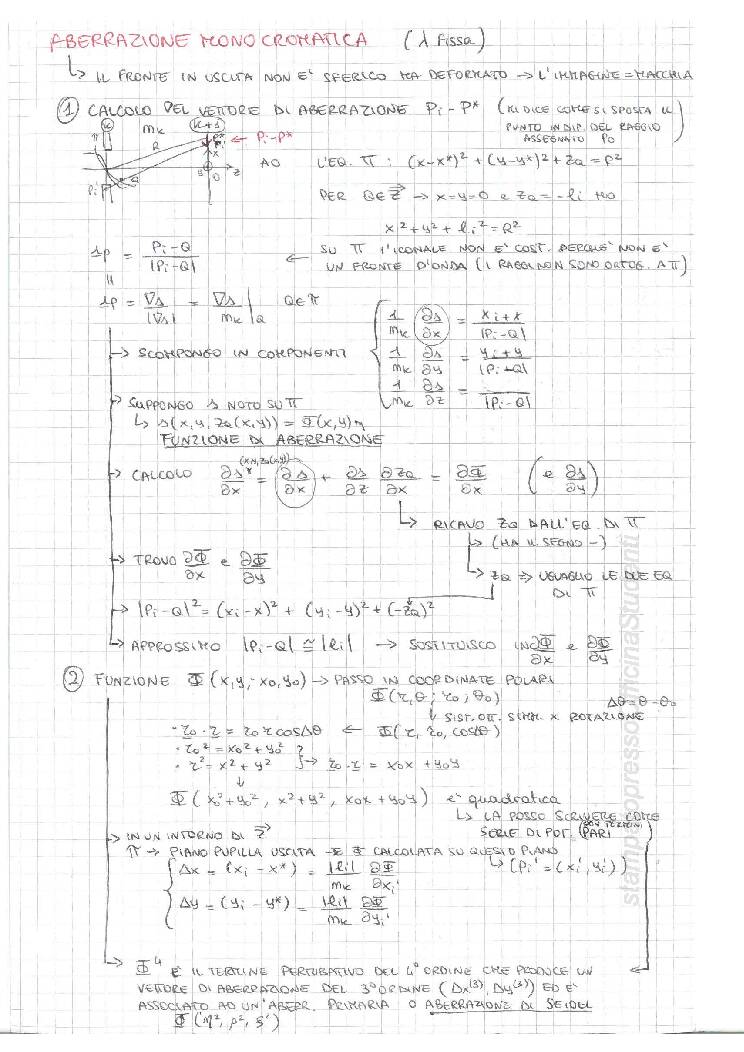 ABERRAZIONE MONOCROMATICA (λ fissa)
↳ IL FRONTE IN USCITA NON E' SFERICO MA DEFORMATO → L'IMMAGINE = MACCHIA
① CALCOLO DEL VETTORE DI ABERRAZIONE Pi - P* (MI DICE COME SI SPOSTA IL PUNTO IN DIP. DEL RAGGIO ASSEGNATO P0)
π K mk R K+1 P* ← Pi-P*
x Q Pi O z
AO L'EQ. π : (x-x*)² + (y-y*)² + ZQ = ρ²
PER Q∈z → x=y=0 e ZQ = -li HO
x² + y² + li² = R²
sp = Pi-Q / |Pi-Q| ← SU π L'ICONALE NON E' COST. PERCHE' NON E' UN FRONTE D'ONDA (I RAGGI NON SONO ORTOG. A π)
sp = ∇s / |∇s| = ∇s / mk |Q Q∈π
→ SCOMPONGO IN COMPONENTI
1/mk ∂s/∂x = xi+x / |Pi-Q|
1/mk ∂s/∂y = yi+y / |Pi-Q|
1/mk ∂s/∂z = / |Pi-Q|
→ SUPPONGO s NOTO SU π
↳ s(x, y, ZQ(x,y)) = Φ(x,y)
FUNZIONE DI ABERRAZIONE
→ CALCOLO ∂s*/∂x (x,y,ZQ(x,y)) = ∂s/∂x + ∂s/∂z ∂ZQ/∂x = ∂Φ/∂x (e ∂s/∂y)
↳ RICAVO ZQ DALL'EQ. DI π
↳ (HA IL SEGNO -)
→ TROVO ∂Φ/∂x e ∂Φ/∂y
↳ ZQ ⇒ UGUAGLIO LE DUE EQ DI π
→ |Pi-Q|² = (xi-x)² + (yi-y)² + (-ZQ)²
→ APPROSSIMO |Pi-Q| ≅ |li| → SOSTITUISCO IN ∂Φ/∂x e ∂Φ/∂y
② FUNZIONE Φ(x,y,-x0,y0) → PASSO IN COORDINATE POLARI
Φ(r,θ ; r0 ; θ0) Δθ = θ - θ0
↓ SIST. OTT. SIMM. x ROTAZIONE
· r0 · r = r0 r cosΔθ ← Φ(r, r0, cosΔθ)
· r0² = x0² + y0²
· r² = x² + y² → r0 · r = x0x + y0y
↓
Φ(x0² + y0², x² + y², x0x + y0y) e' quadratica
↳ LA POSSO SCRIVERE COME SERIE DI POT. (CON TERMINI PARI)
→ IN UN INTORNO DI z
π → PIANO PUPILLA USCITA → Φ CALCOLATA SU QUESTO PIANO
↳ (Pi' = (xi', yi'))
Δx = (xi - x*) = |li|/mk ∂Φ/∂xi'
Δy = (yi - y*) = |li|/mk ∂Φ/∂yi'
→ Φ⁴ E' IL TERMINE PERTURBATIVO DEL 4° ORDINE CHE PRODUCE UN
VETTORE DI ABERRAZIONE DEL 3° ORDINE (Δx⁽³⁾, Δy⁽³⁾) ED E'
ASSOCIATO AD UN'ABERR. PRIMARIA O ABERRAZIONE DI SEIDEL
Φ(η², ρ², ξ')
stampopressoofficinaStudenti